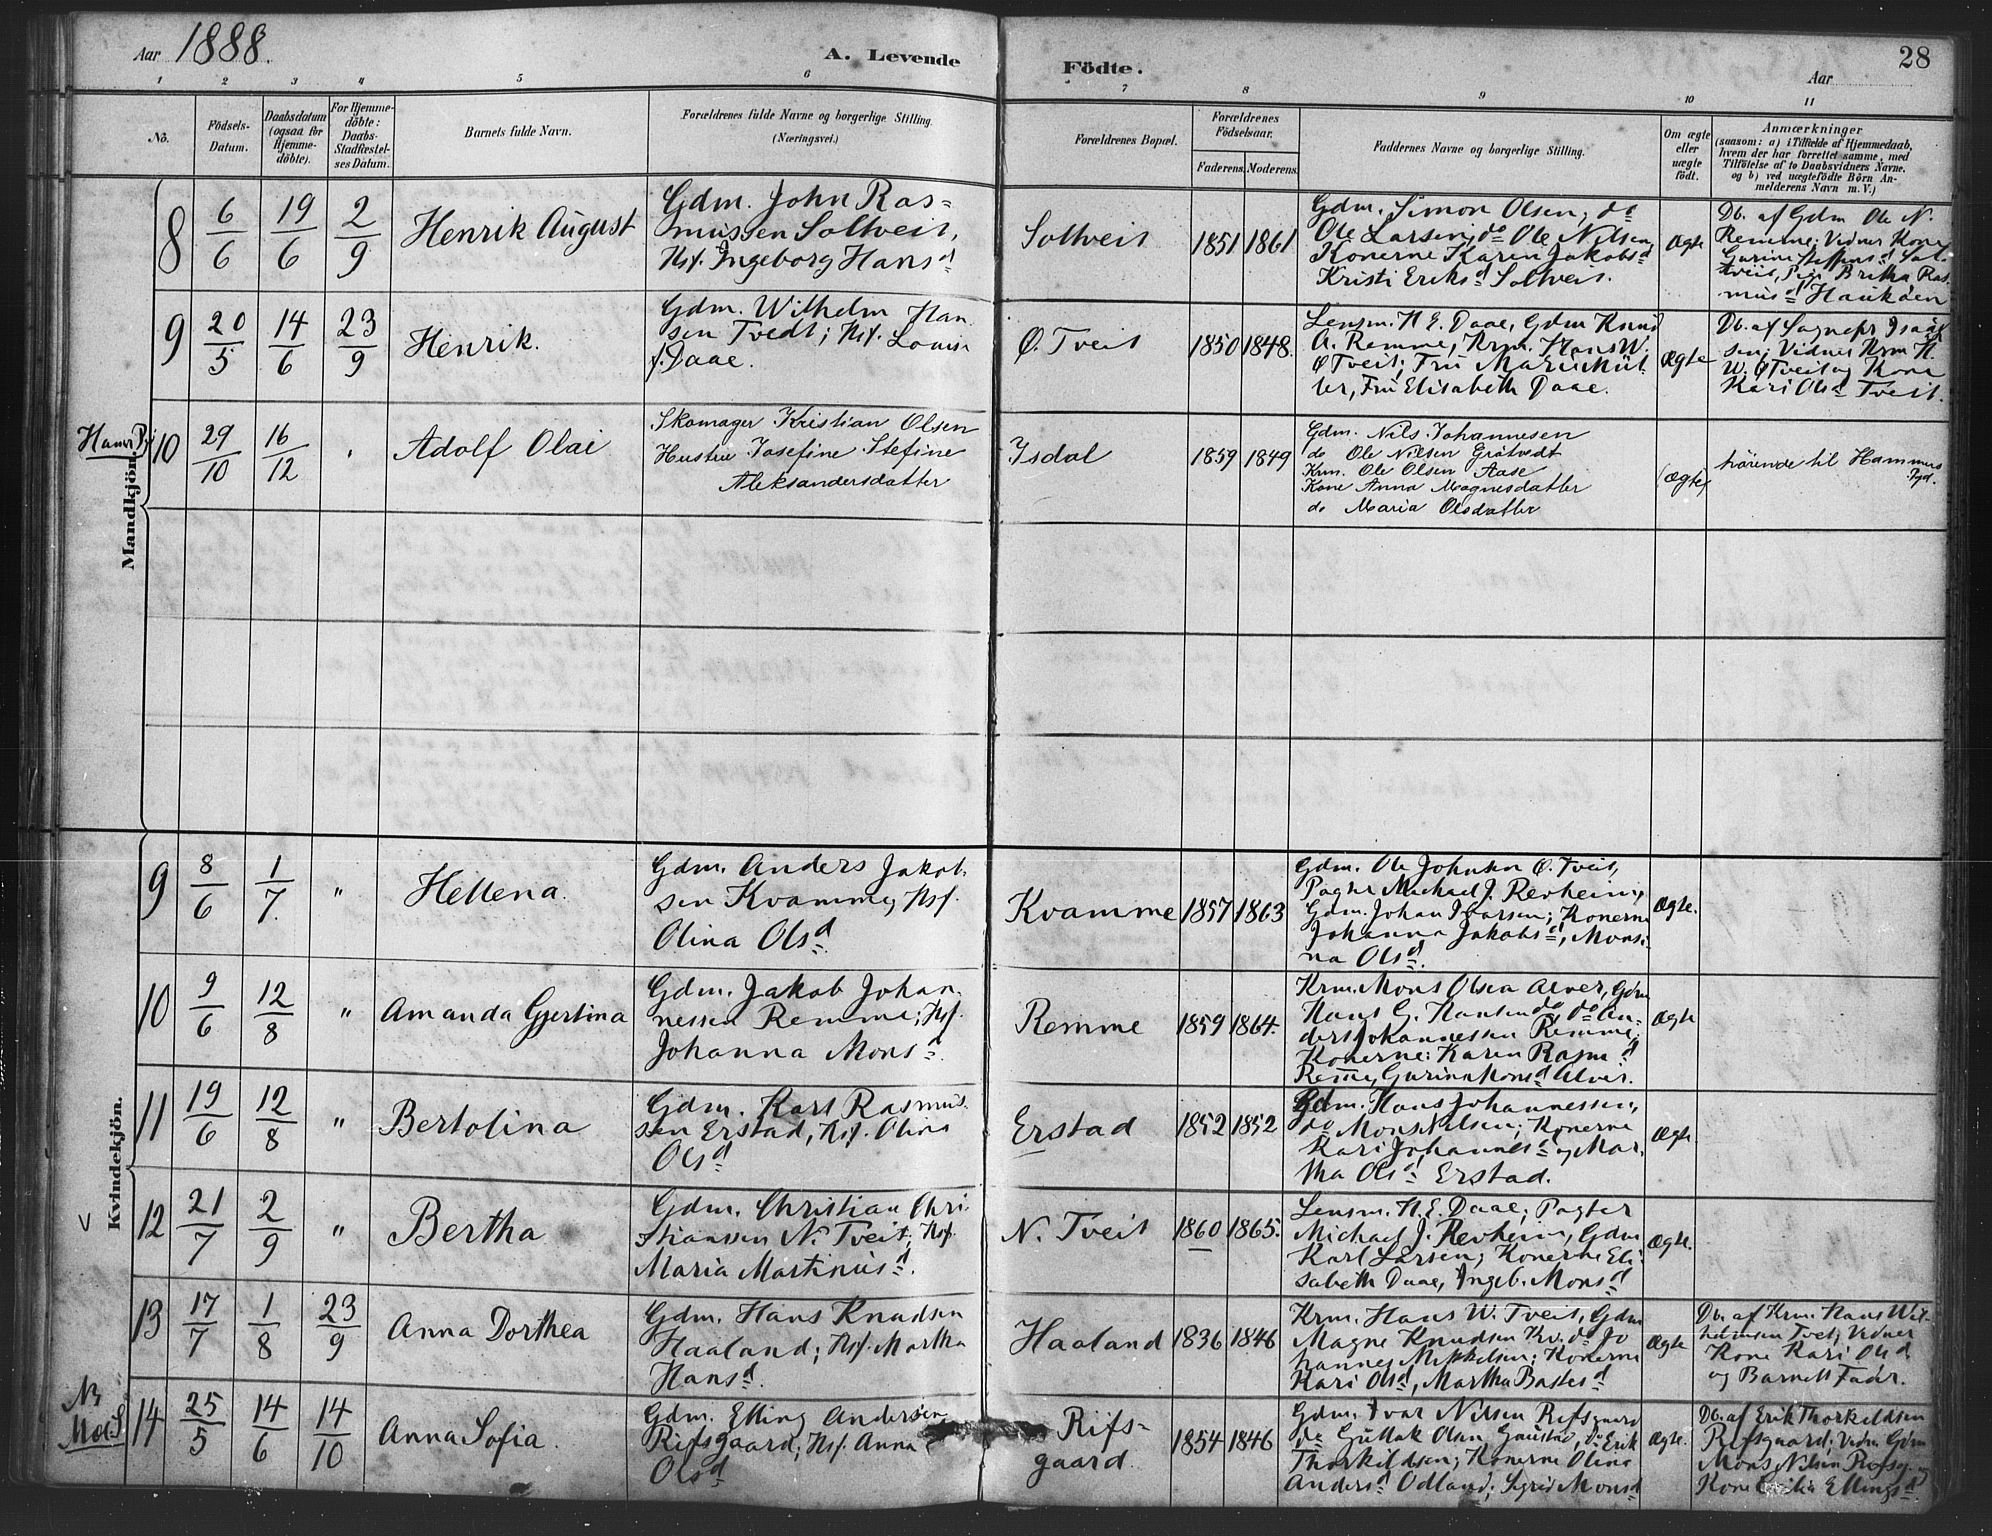 Aar 1888.
A. Levende Födte.
Aar
28
1 2 3 4 5 6 7 8 9 10 11
No.
Födsels-
Datum.
Daabsdatum
(ogsaa for
Hjemme-
døbte).
For Hjemme-
döbte:
Daabs-
Stadfæstel-
ses Datum.
Barnets fulde Navn.
Forældrenes fulde Navne og borgerlige Stilling.
(Næringsvei.)
Forældrenes Bopæl.
Forældrenes
Födselsaar.
Faderens. Moderens.
Faddernes Navne og borgerlige Stilling.
Om ægte
eller
uægte
født.
Anmærkninger
(saasom: a) i Tilfælde af Hjemmedaab,
hvem der har forrettet samme, med
Tilföielse af to Daabsvidners Navne.
og b) ved uægtefödte Börn An-
melderens Navn m. V.)
Mandkjön.
8
6/6
19/6
2/9
Henrik August
Gdm. John Ras=
mussen Soltveit,
Hsf. Ingeborg Hansd
Soltveit
1851 1861
Gdm. Simon Olsen, do
Ole Larsen, do Ole Nilsen,
Konerne Karen Jakobsd
Kristi Eriksd Soltveit.
Ægte
Db. af Gdm Ole N.
Remme; Vidner Kone
Gurine Steffensd Sol-
tveit, Pige Britha Ras
musd Haukøen
9
20/5
14/6
23/9
Henrik.
Gdm. Wilhelm Han
sen Tvedt; Hsf. Louise
f. Daae.
Ø. Tveit
1850 1848.
Lensm. H. E. Daae, Gdm Knud
A. Remme, Krm. Hans W.
Ø Tveit; Fru Marie Mül-
ler, Fru Elisabeth Daae.
Ægte
Db. af Sognepr Isaak
sen, Vidner Krm H.
W. Ø Tveit og Kone
Kari Olsd Tveit.
10
29/10
16/12
"
Adolf Olai
Skomager Kristian Olsen
Hustru Josefine Stefine
Aleksandersdatter
Isdal
1859 1849
Gdm. Nils Johannesen
do Ole Nilsen Gråtvedt
Krm. Ole Olsen Aase
Kone Anna Magnesdatter
do Maria Olsdatter
(ægte)
hørende til Hammers
Pgd.
Kvindekjön.
9
8/6
1/7.
"
Hellena.
Gdm. Anders Jakob-
sen Kvamme, Hsf.
Olina Olsd.
Kvamme
1857 1863
Gdm. Ole Johnsen Ø. Tveit,
Pagter Michael J. Revheim,
Gdm. Johan Ivarsen; Konerne
Johanna Jakobsd, Monsi-
na Olsd.
Ægte.
10
9/6
12/8
"
Amanda Gjertina
Gdm. Jakob Johan-
nessen Remme; Hsf.
Johanna Monsd.
Remme
1859 1864.
Krm. Mons Olsen Alver, Gdm
Hans G. Hansen do, do An-
ders Johannessen Remme;
Konerne: Karen Rasmd
Remme, Gurina Monsd Alver.
Ægte
11
19/6
12/8
"
Bertolina
Gdm. Karl Rasmus-
sen Erstad, Hsf. Olina
Olsd
Erstad
1852 1852
Gdm. Hans Johannessen,
do Mons Nilsen; Konerne
Kari Johannesd og Mar-
tha Olsd Erstad.
Ægte
12
21/7
2/9
"
Bertha
Gdm. Christian Chri
stianssen N. Tveit, Hsf.
Maria Martinusd.
N. Tveit
1860 1865.
Lensm. H. E. Daae, Pagter
Michael J. Revheim, Gdm
Karl Larsen; Konerne Eli
sabeth Daae, Ingeb. Monsd
Ægte.
13
17/7
1/8
23/9
Anna Dorthea
Gdm. Hans Knudsen
Haaland; Hsf. Martha
Hansd.
Haaland
1836 1846
Krm. Hans W. Tveit, Gdm
Magne Knudsen Kv. do Jo
hannes Mikkelsen; Konerne
Kari Olsd, Martha Bastesd
Ægte
Db. af Krm. Hans Wil-
helmsen Tveit; Vidner
Kone Kari Olsd
og Barnets Fader.
14
25/5
14/6
14/10
Anna Sofia.
Gdm. Elling Andersen
Rifsgaard; Hsf. Anna
Olsd
Rifs-
gaard.
1854 1846
Gdm. Ivar Nilsen Rifsgaard
do Gullak Olsen Gaustad, do Erik
Thorkildsen; Konerne Olina
Andersd Odland; Sigrid Monsd
Ægte.
Db. af Erik Thorkildsen
Rifsgaard; Vidner Gdm
Mons Nilsen Rifsg. og
Kone Ellingsd.